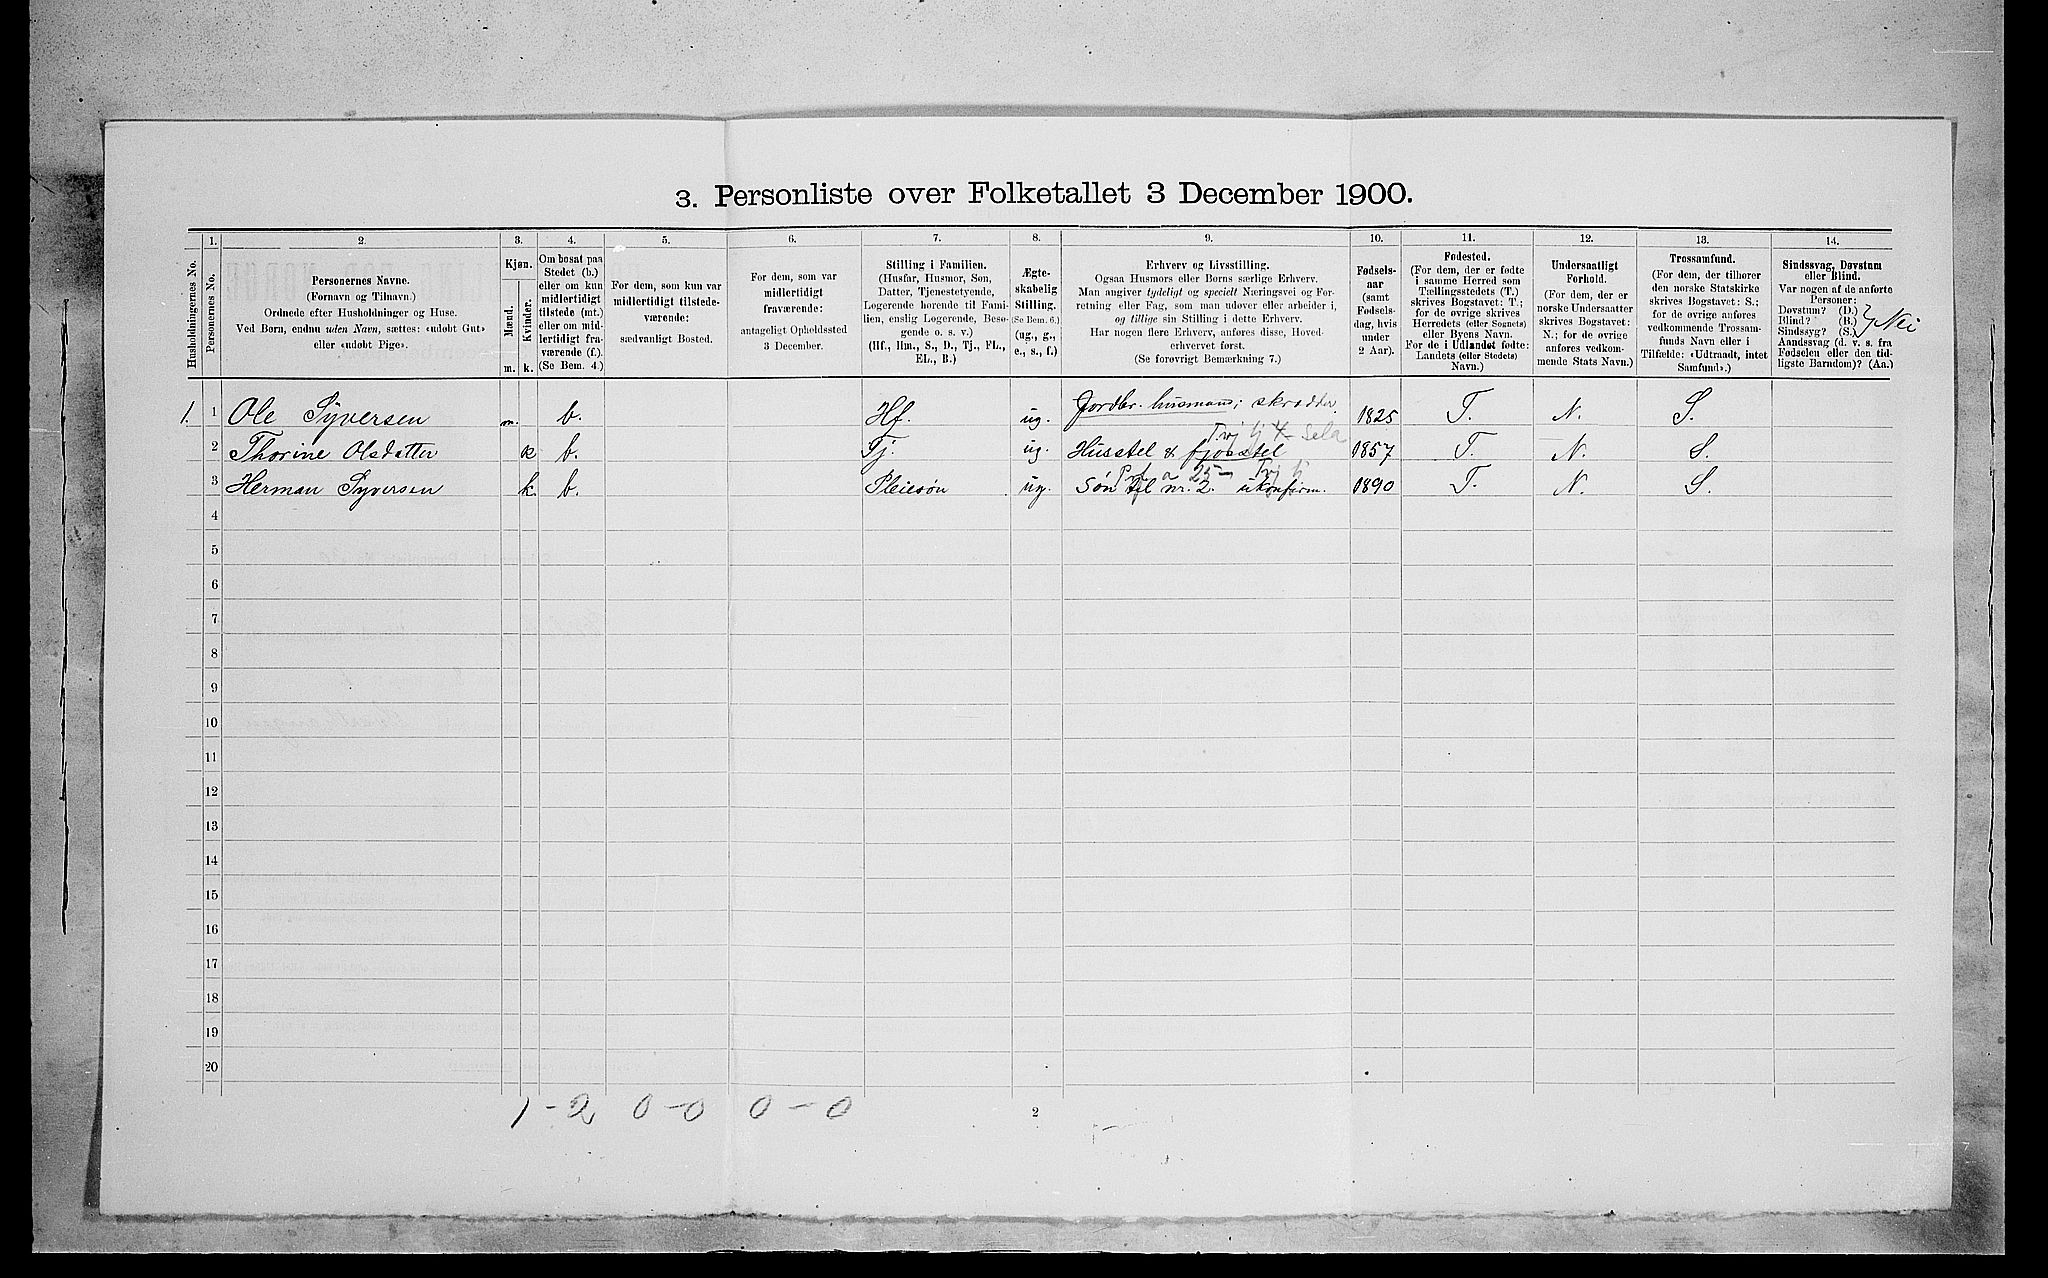 3. Personliste over Folketallet 3 December 1900.
Husholdningernes No.
1.
Personernes No.
2.
Personernes Navne.
(Fornavn og Tilnavn.)
Ordnede efter Husholdninger og Huse.
Ved Børn, endnu uden Navn, sættes: «udøbt Gut»
eller «udøbt Pige».
3.
Kjøn.
Mænd.
Kvinder.
m.
k.
4.
Om bosat paa
Stedet (b.)
eller om kun
midlertidigt
tilstede (mt.)
eller om mid-
lertidigt fra-
værende (f.).
(Se Bem. 4.)
5.
For dem, som kun var
midlertidigt tilstede-
værende:
sædvanligt Bosted.
6.
For dem, som var
midlertidigt
fraværende:
antageligt Opholdssted
3 December.
7.
Stilling i Familien.
(Husfar, Husmor, Søn,
Datter, Tjenestetyende,
Logerende hørende til Fami-
lien, enslig Logerende, Besø-
gende o. s. v.)
(Hf., Hm., S., D., Tj., FL.,
EL., B.)
8.
Ægte-
skabelig
Stilling.
(Se Bem. 6.)
(ug., g.,
e., s., f.)
9.
Erhverv og Livsstilling.
Ogsaa Husmors eller Børns særlige Erhverv.
Man angiver tydeligt og specielt Næringsvei og For-
retning eller Fag, som man udøver eller arbeider i,
og tillige sin Stilling i dette Erhverv.
Har nogen flere Erhverv, anføres disse, Hoved-
erhvervet først.
(Se forøvrigt Bemærkning 7.)
10.
Fødsels-
aar
(samt
Fødsels-
dag, hvis
under
2 Aar).
11.
Fødested.
(For dem, der er fødte
i samme Herred som
Tællingsstedets (T.)
skrives Bogstavet: T.;
for de øvrige skrives
Herredets (eller Sognets)
eller Byens Navn.
For de i Udlandet fødte:
Landets (eller Stedets)
Navn.)
12.
Undersaatligt
Forhold.
(For dem, der er
norske Undersaatter
skrives Bogstavet:
N.; for de øvrige
anføres vedkom-
mende Stats Navn.)
13.
Trossamfund.
(For dem, der tilhører
den norske Statskirke
skrives Bogstavet: S.;
for de øvrige anføres
vedkommende Trossam-
funds Navn eller i
Tilfælde: «Udtraadt, intet
Samfund».)
14.
Sindssvag, Døvstum
eller Blind.
Var nogen af de anførte
Personer:
Døvstum? (D.)
Blind? (B.)
Sindssyg? (S.)
Aandssvag (d. v. s. fra
Fødselen eller den tid-
ligste Barndom)? (Aa.)
Nei
1. 1 Ole Syversen m. b. Hf. ug. Jordbr. husmand; skrædder 1825 T. N. S.
2 Thorine Olsdatter k b. Tj. ug. Husstel & fjøsstel 1857 T. N. S.
3 Herman Syversen k. b. Pleiesøn ug. Søn til nr. 2. ukonfirm. 1890 T. N. S.
4
5
6
7
8
9
10
11
12
13
14
15
16
17
18
19
20
1 - 2 0 - 0 0 - 0
2